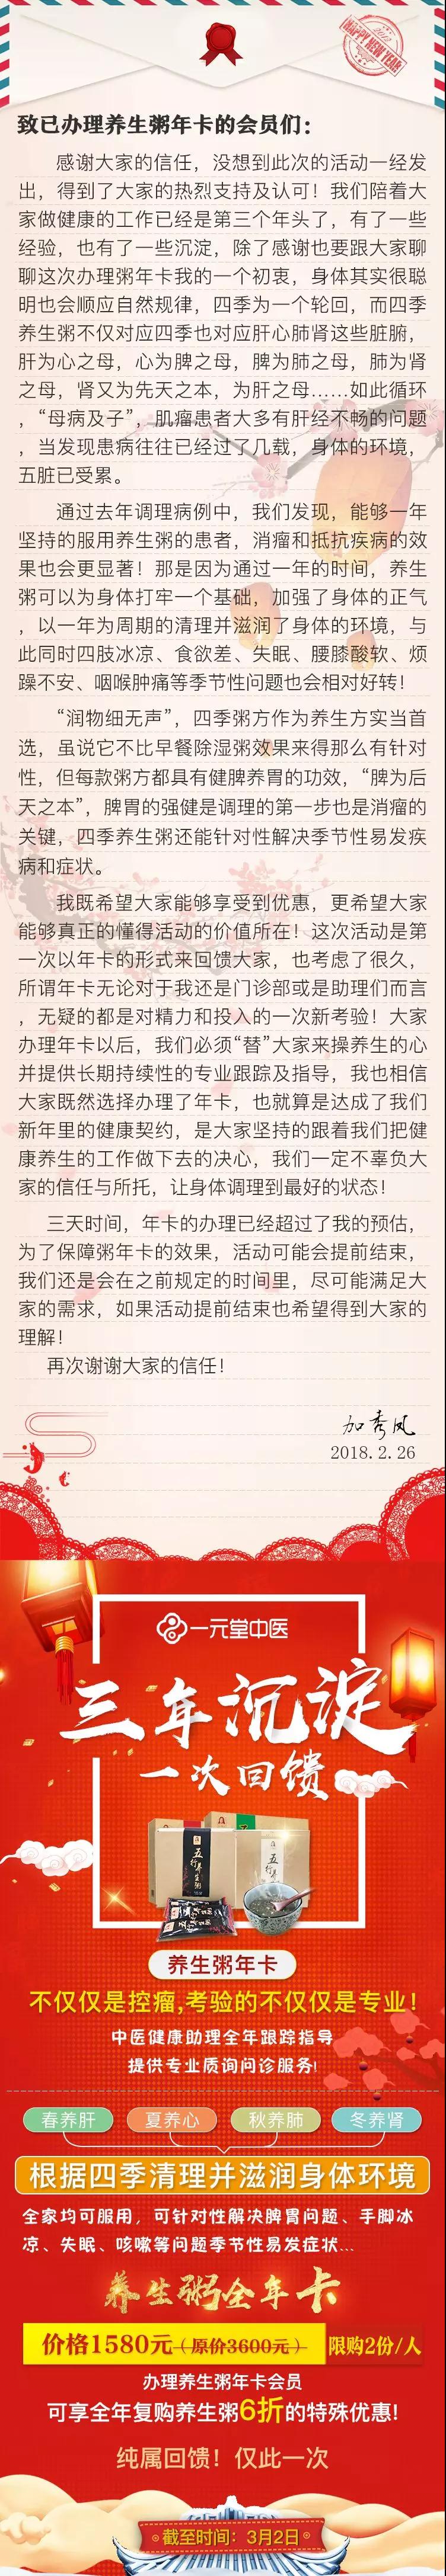 HAPPY NEW YEAR!
致已办理养生粥年卡的会员们：
感谢大家的信任，没想到此次的活动一经发
出，得到了大家的热烈支持及认可！我们陪着大
家做健康的工作已经是第三个年头了，有了一些
经验，也有了一些沉淀，除了感谢也要跟大家聊
聊这次办理粥年卡我的一个初衷，身体其实很聪
明也会顺应自然规律，四季为一个轮回，而四季
养生粥不仅对应四季也对应肝心肺肾这些脏腑，
肝为心之母，心为脾之母，脾为肺之母，肺为肾
之母，肾又为先天之本，为肝之母……如此循环
，“母病及子”，肌瘤患者大多有肝经不畅的问题
，当发现患病往往已经过了几载，身体的环境，
五脏已受累。
通过去年调理病例中，我们发现，能够一年
坚持的服用养生粥的患者，消瘤和抵抗疾病的效
果也会更显著！那是因为通过一年的时间，养生
粥可以为身体打牢一个基础，加强了身体的正气
，以一年为周期的清理并滋润了身体的环境，与
此同时四肢冰凉、食欲差、失眠、腰膝酸软、烦
躁不安、咽喉肿痛等季节性问题也会相对好转！
“润物细无声”，四季粥方作为养生方实当首
选，虽说它不比早餐除湿粥效果来得那么有针对
性，但每款粥方都具有健脾养胃的功效，“脾为后
天之本”，脾胃的强健是调理的第一步也是消瘤的
关键，四季养生粥还能针对性解决季节性易发疾
病和症状。
我既希望大家能够享受到优惠，更希望大家
能够真正的懂得活动的价值所在！这次活动是第
一次以年卡的形式来回馈大家，也考虑了很久，
所谓年卡无论对于我还是门诊部或是助理们而言
，无疑的都是对精力和投入的一次新考验！大家
办理年卡以后，我们必须“替”大家来操养生的心
并提供长期持续性的专业跟踪及指导，我也相信
大家既然选择办理了年卡，也就算是达成了我们
新年里的健康契约，是大家坚持的跟着我们把健
康养生的工作做下去的决心，我们一定不辜负大
家的信任与所托，让身体调理到最好的状态！
三天时间，年卡的办理已经超过了我的预估，
为了保障粥年卡的效果，活动可能会提前结束，
我们还是会在之前规定的时间里，尽可能满足大
家的需求，如果活动提前结束也希望得到大家的
理解！
再次谢谢大家的信任！
加秀凤
2018.2.26
一元堂中医
三年沉淀
一次回馈
五行养生粥
五行养生粥
养生粥年卡
不仅仅是控瘤,考验的不仅仅是专业！
中医健康助理全年跟踪指导
提供专业质询问诊服务！
春养肝 夏养心 秋养肺 冬养肾
根据四季清理并滋润身体环境
全家均可服用，可针对性解决脾胃问题、手脚冰
凉、失眠、咳嗽等问题季节性易发症状...
养生粥全年卡
价格1580元（原价3600元）限购2份/人
办理养生粥年卡会员
可享全年复购养生粥6折的特殊优惠！
纯属回馈！仅此一次
截至时间：3月2日